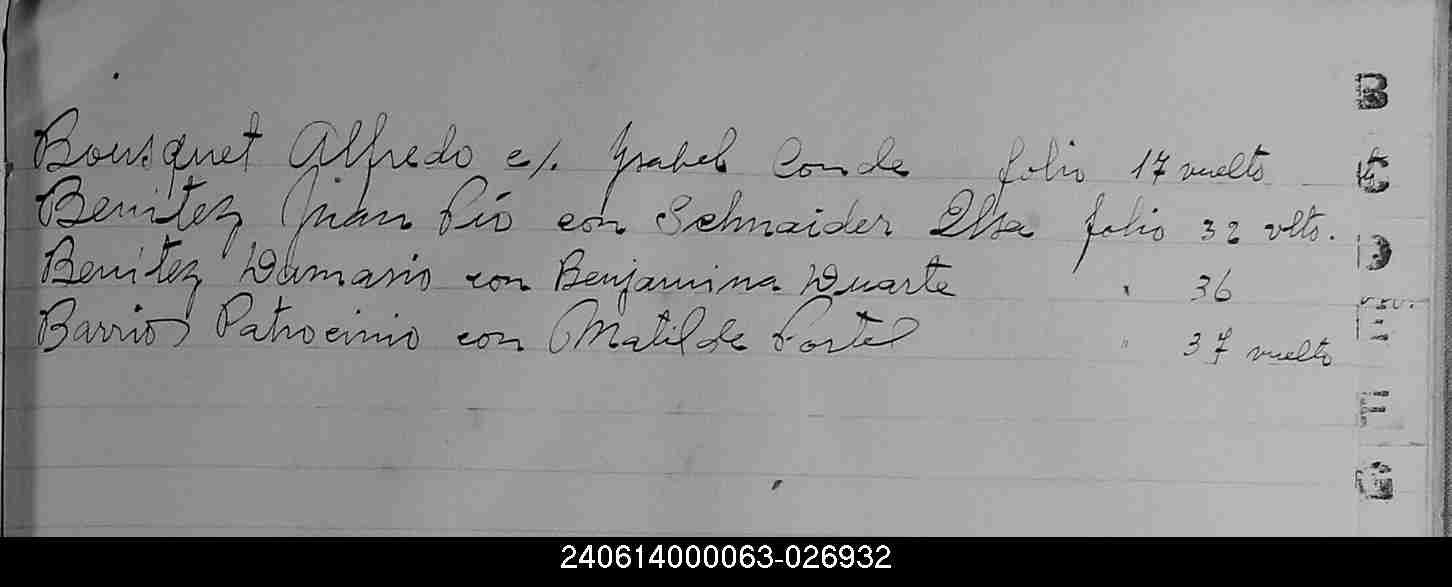 B
Bousquet Alfredo c/. Ysabel Conde folio 17 vuelto
C
Benitez Juan Pio con Schnaider Elsa folio 32 vlto.
D
Benitez Damasio con Benjamina Duarte " 36
E
Barrios Patrocinio con Matilde Portel " 37 vuelto
F
G
240614000063-026932